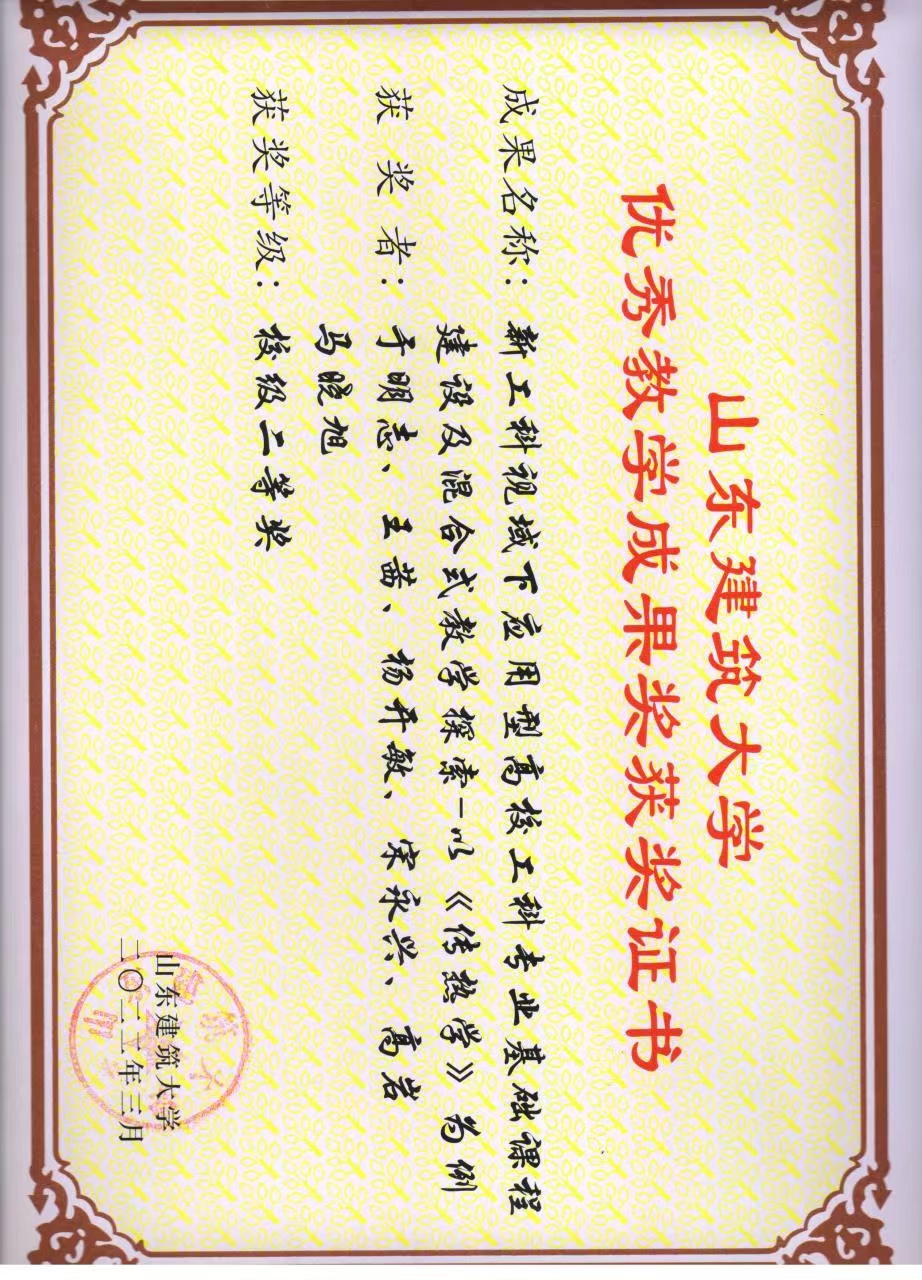 山东建筑大学
优秀教学成果奖获奖证书
成果名称：新工科视域下应用型高校工科专业基础课程
建设及混合式教学探索—以《传热学》为例
获奖者：于明志、王茜、杨开敏、宋永兴、高岩
马晓旭
获奖等级：校级二等奖
山东建筑大学
二〇二二年三月